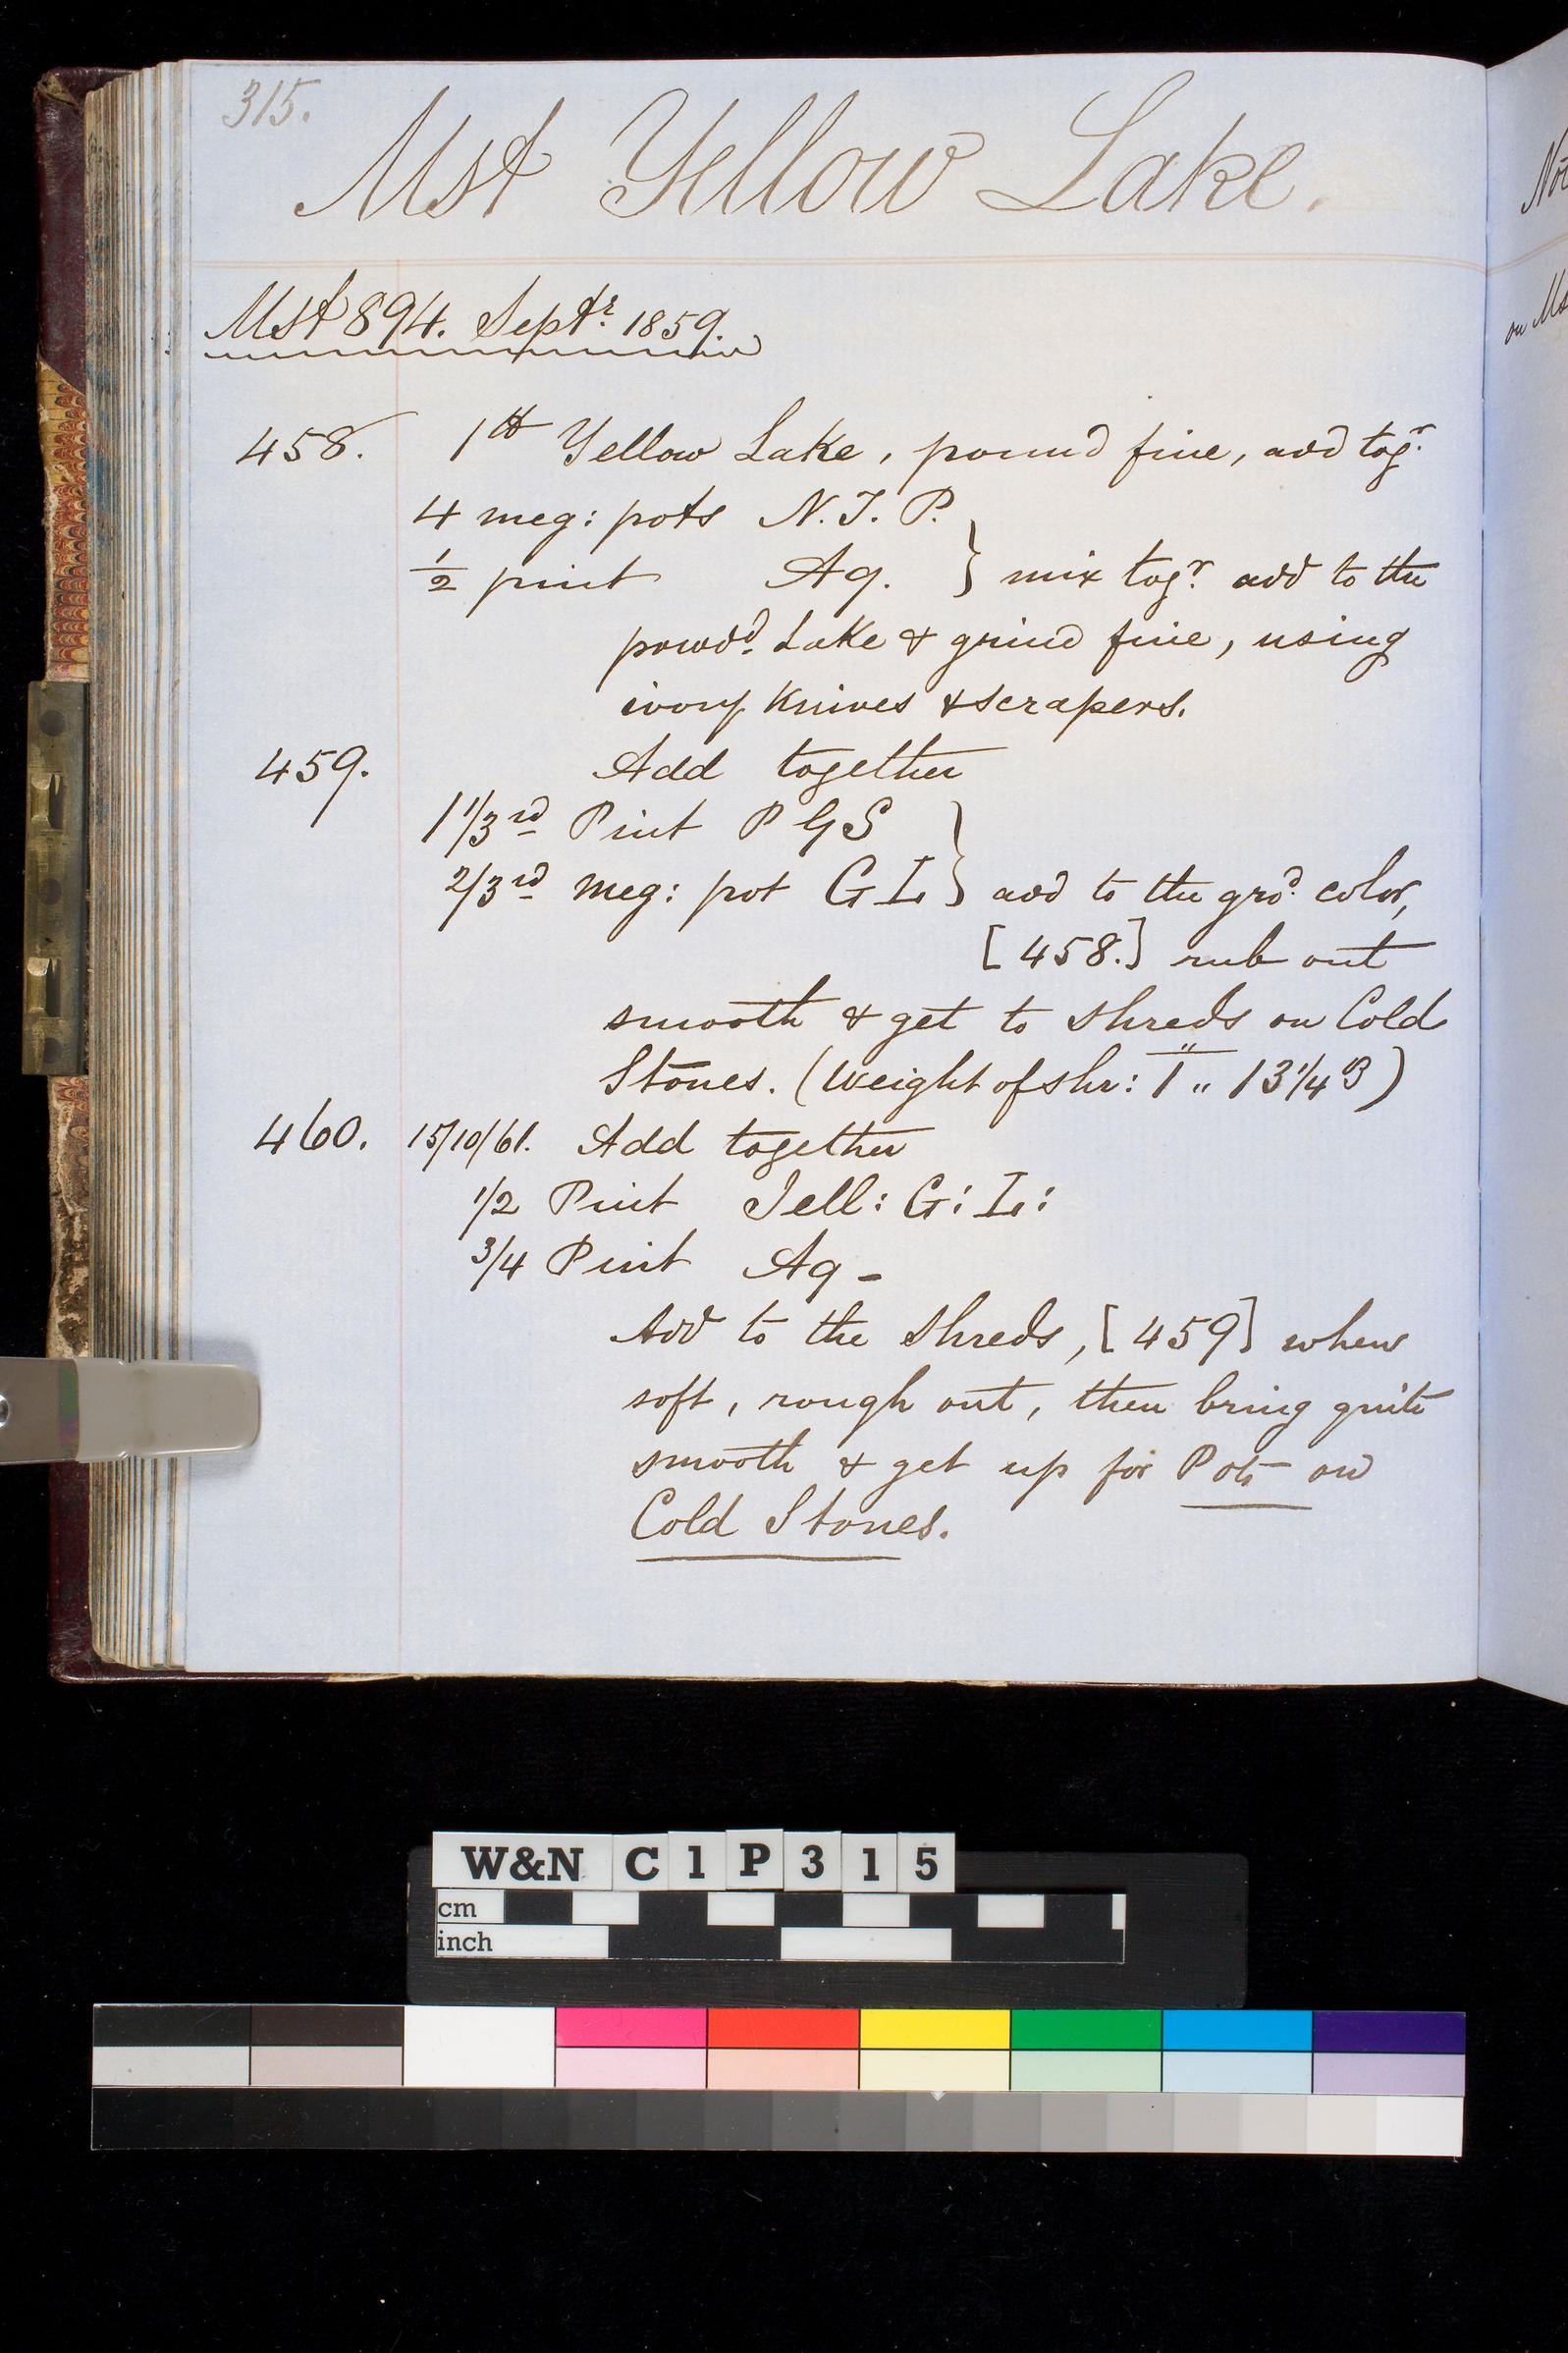 315.
Mst Yellow Lake.
Mst 894. Septr. 1859.
458. 1 lb Yellow Lake, pound fine, add togr.
4 meg: pots N. J. P.
1/2 pint Aq. } mix togr. add to the
powdd. Lake & grind fine, using
ivory knives & scrapers.
459. Add together
1 1/3rd Pint P G S
2/3rd meg: pot G L } add to the grod. color,
[458.] rub out
smooth & get to shreds on Cold
Stones. (Weight of shr: 1 „ 13 1/4 B)
460. 15/10/61. Add together
1/2 Pint Jell: G: L:
3/4 Pint Aq -
Add to the shreds, [459] when
soft, rough out, then bring quite
smooth & get up for Pots on
Cold Stones.
on Ms
W&N C1P315
cm
inch